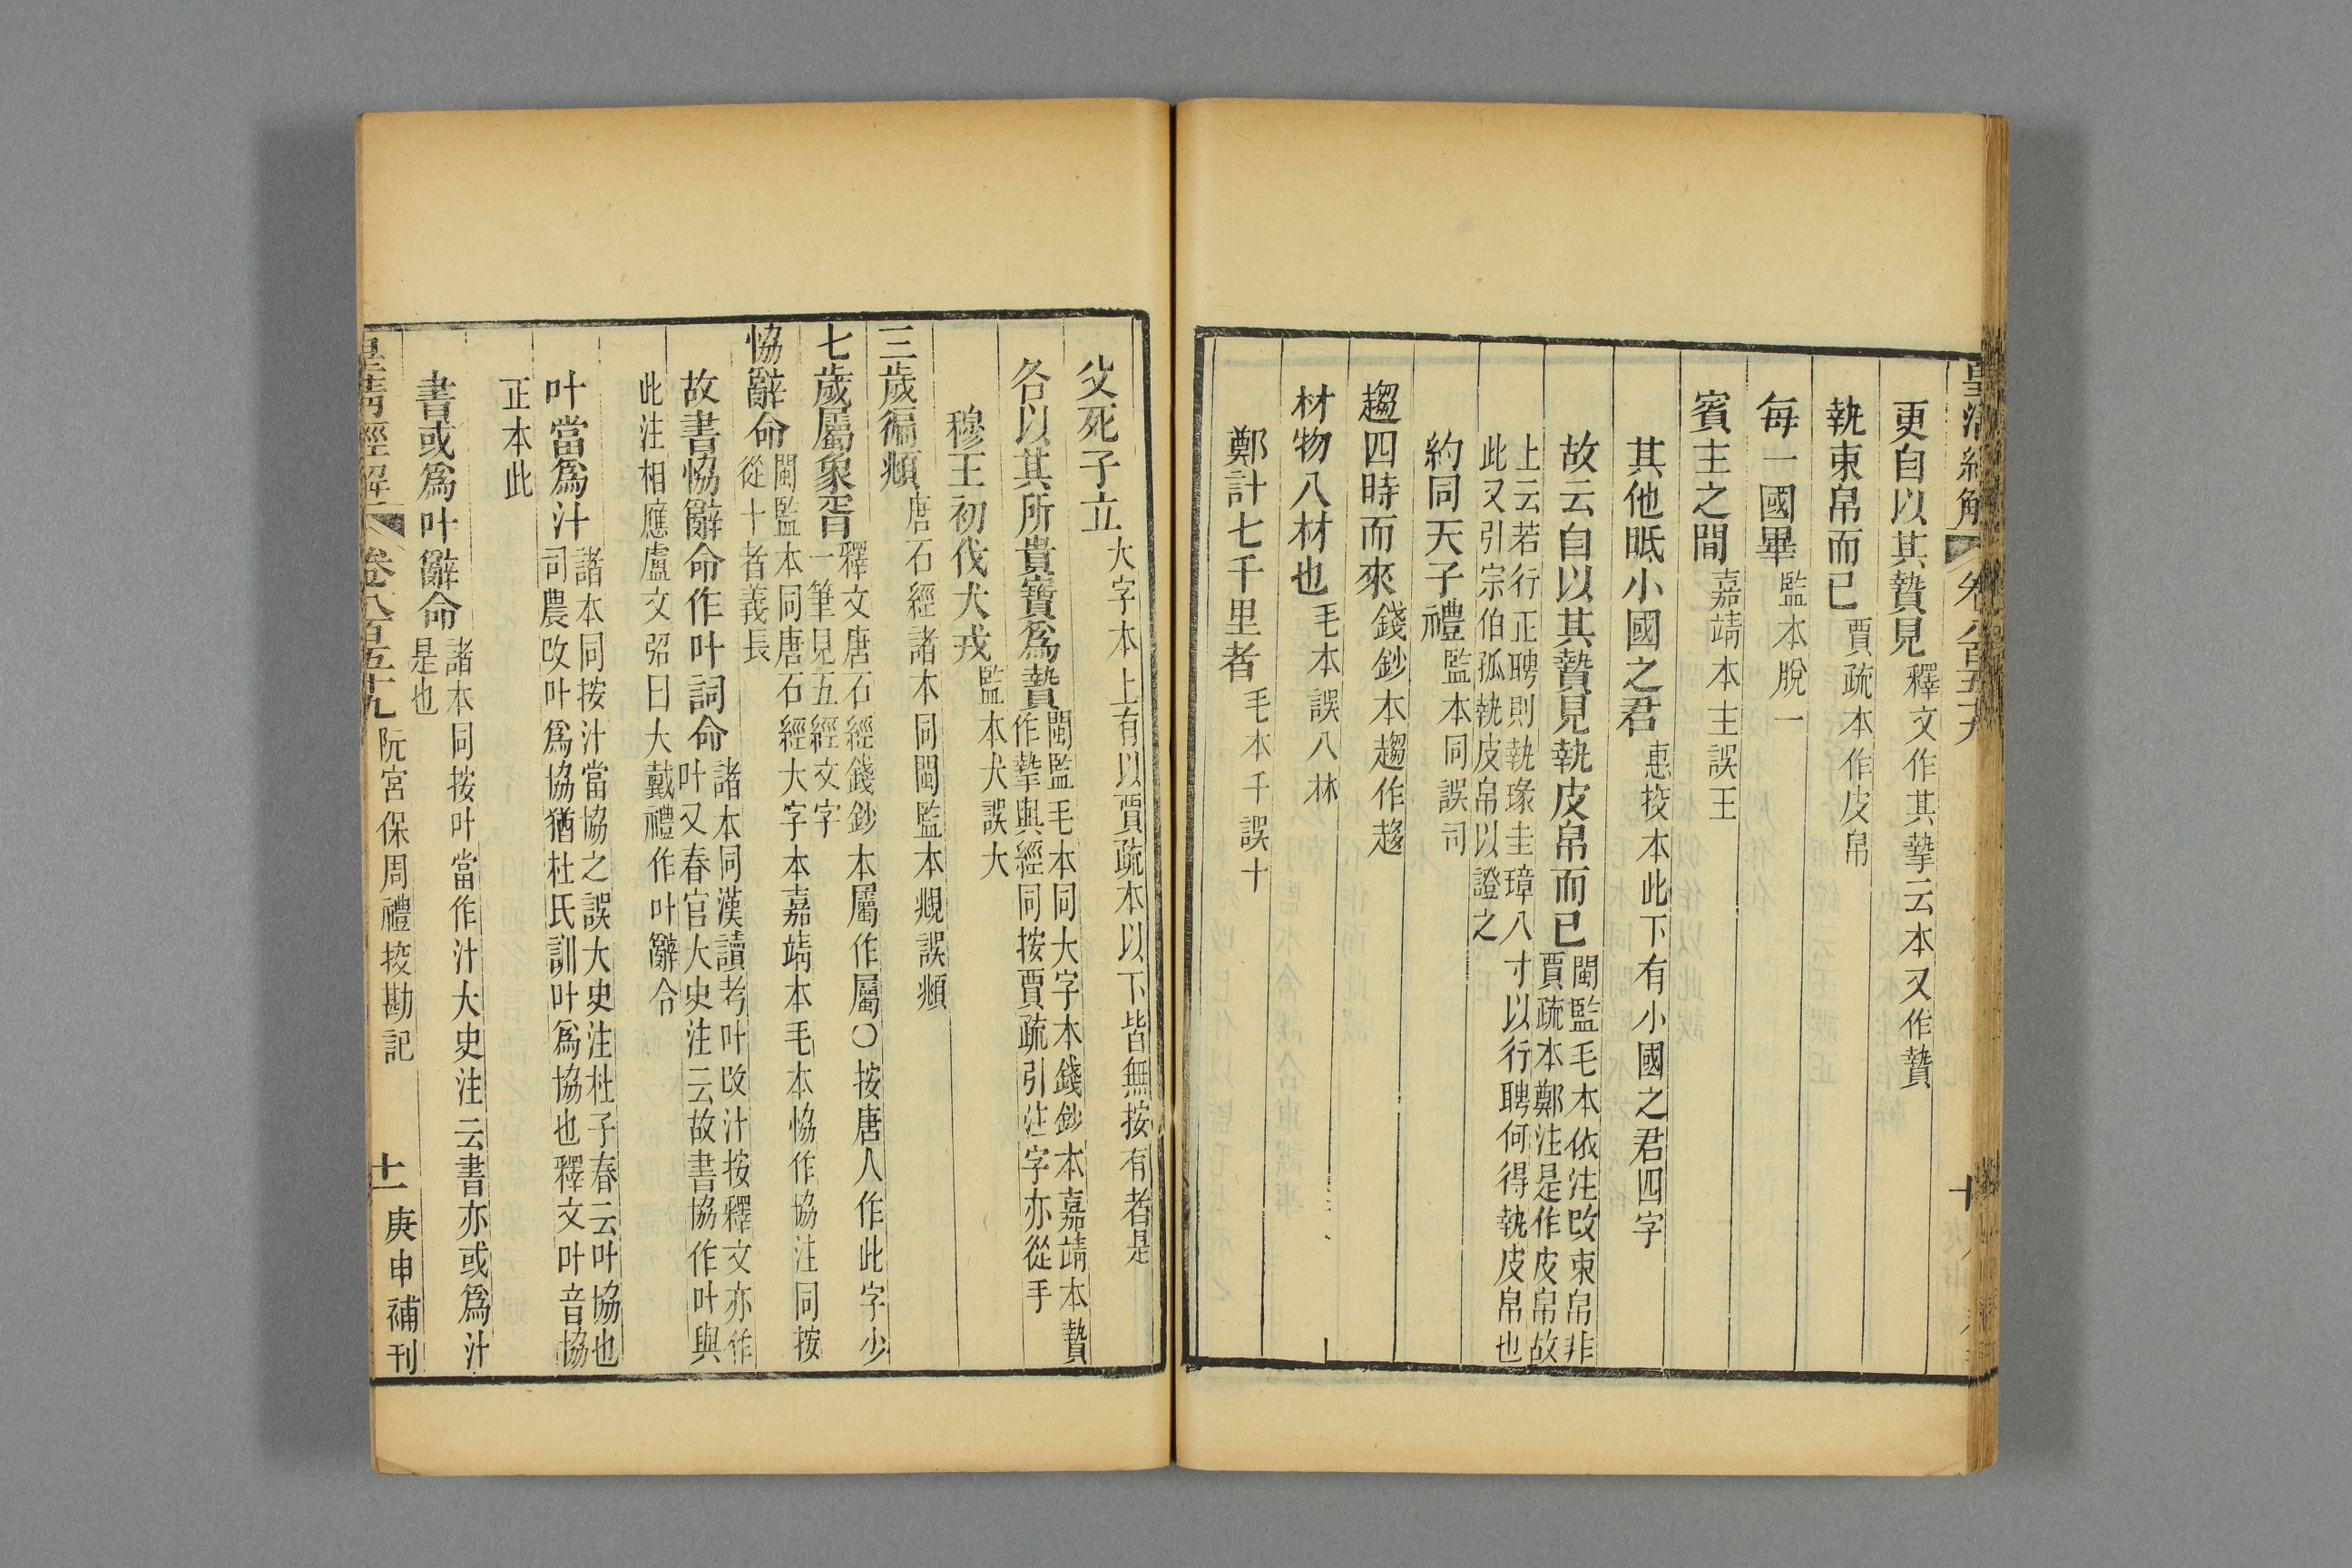 皇清經解 卷八百五十九 十
更自以其贄見釋文作其摯云本又作贄
執束帛而已賈疏本作皮帛
每一國畢監本脫一
賓主之間嘉靖本主誤王
其他眡小國之君惠挍本此下有小國之君四字
故云自以其贄見執皮帛而已閩監毛本依注改束帛非賈疏本鄭注是作皮帛故
上云若行正聘則執瑑圭璋八寸以行聘何得執皮帛也此又引宗伯孤執皮帛以證之
約同天子禮監本同誤司
趨四時而來錢鈔本趨作趍
材物八材也毛本誤八林
鄭計七千里者毛本千誤十
父死子立大字本上有以賈疏本以下皆無按有者是
各以其所貴寶爲贄閩監毛本同大字本錢鈔本嘉靖本贄作摯與經同按賈疏引注字亦從手
穆王初伐犬戎監本犬誤大
三歲徧覜唐石經諸本同閩監本覜誤頫
七歲屬象胥釋文唐石經錢鈔本屬作属○按唐人作此字少一筆見五經文字
恊辭命閩監本同唐石經大字本嘉靖本毛本恊作協注同按從十者義長
故書恊辭命作叶詞命諸本同漢讀考叶改汁按釋文亦作叶又春官大史注云故書協作叶與
此注相應盧文弨曰大戴禮作叶辭令
叶當爲汁諸本同按汁當協之誤大史注杜子春云叶協也司農改叶爲協猶杜氏訓叶爲協也釋文叶音協
正本此
書或爲叶辭命諸本同按叶當作汁大史注云書亦或爲汁是也
皇清經解 卷八百五十九 阮宮保周禮挍勘記 十一 庚申補刊